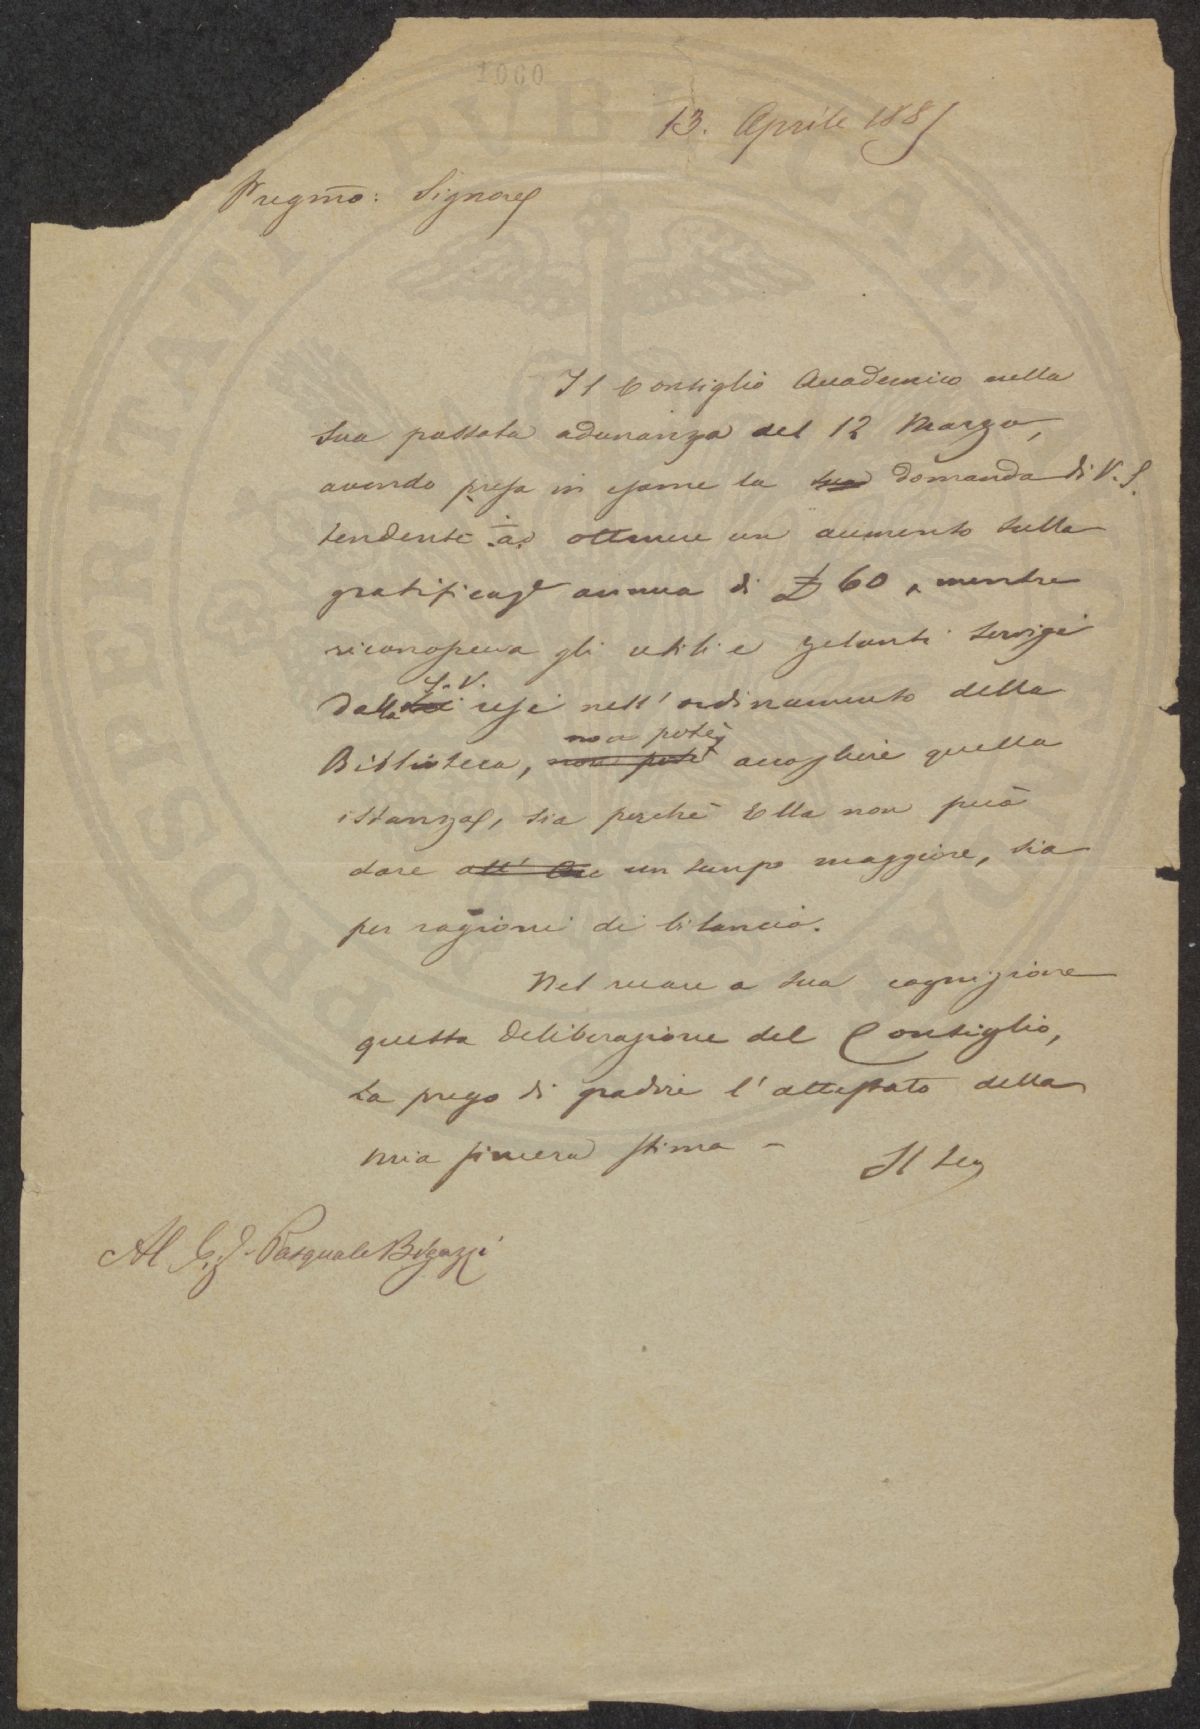 1060
13. Aprile 1881
Pregmo: Signore
Il Consiglio Accademico nella
sua passata adunanza del 12 Marzo,
avendo presa in esame la sua domanda di V. S.
tendente ad ottenere un aumento sulla
gratificaze annua di £ 60, mentre
riconosceva gli utili e zelanti servigi
dalla lei S. V. resi nell'ordinamento della
Biblioteca, non potè non potè accogliere quella
istanza, sia perchè Ella non può
dare all' un tempo maggiore, sia
per ragioni di bilancio.
Nel recare a sua cognizione
questa deliberazione del Consiglio,
La prego di gradire l'attestato della
mia sincera stima -
Il Seg
Al Pasquale Bigazzi
PROSPERITATI PUBLICAE